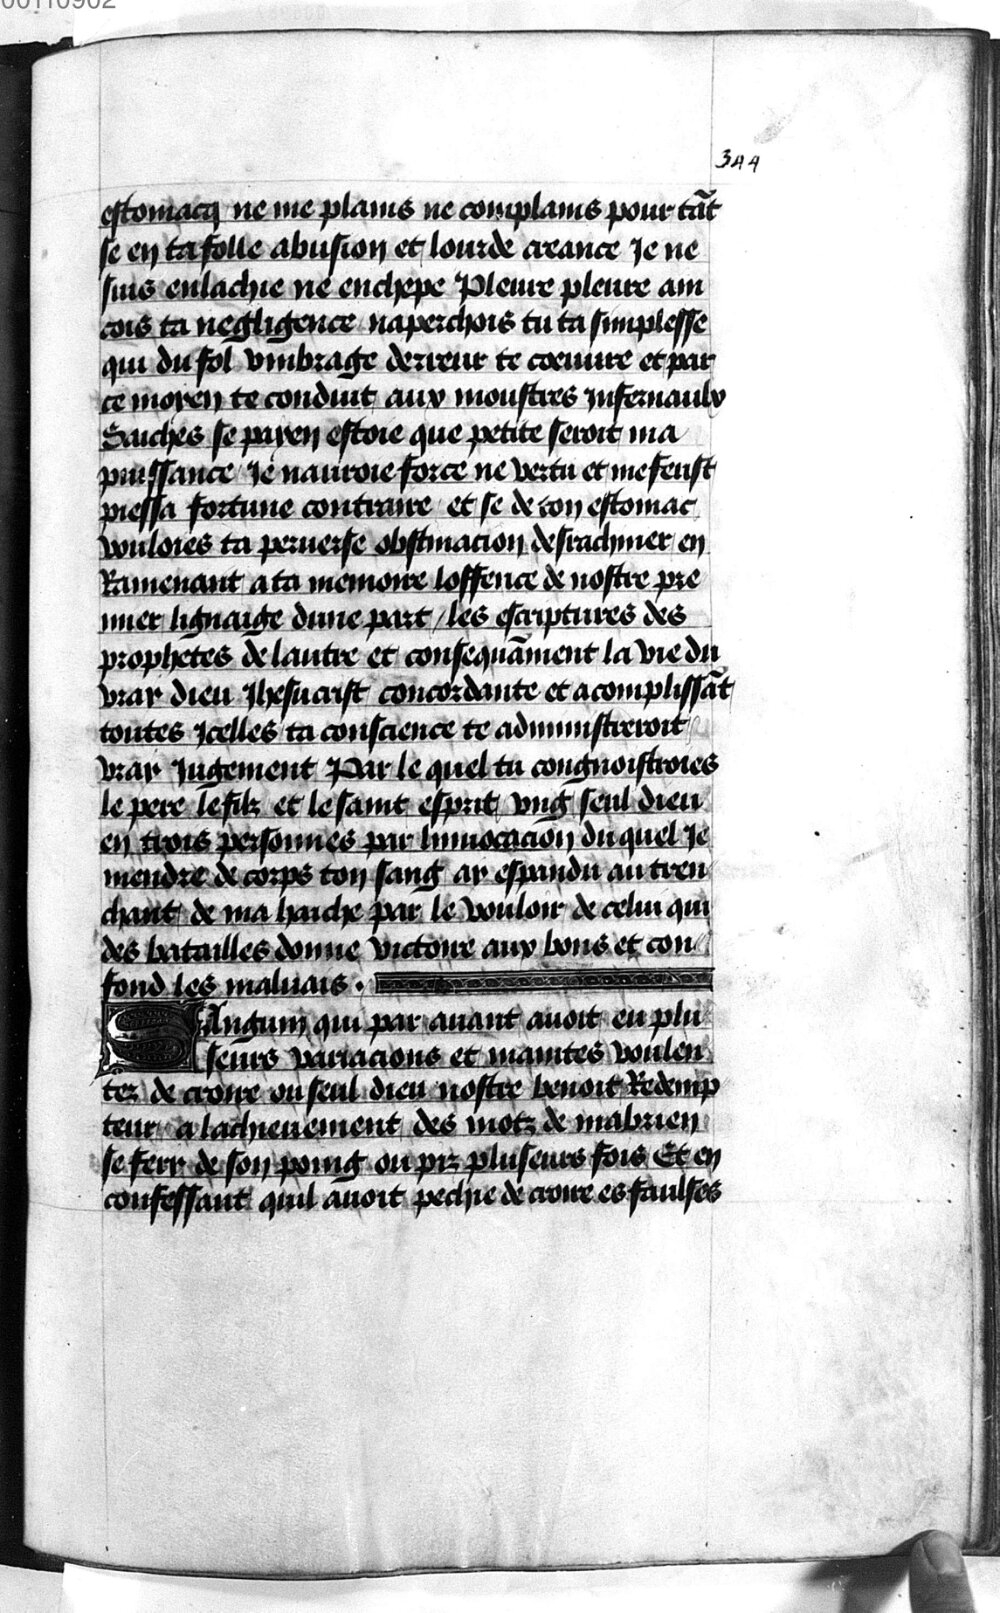 00110902
344
estomacq ne me plains ne complains pour tāt
se en ta folle abusion et lourde creance Je ne
suis enlachie ne enchepe Pleure pleure ain
cois ta negligence naperchois tu ta simplesse
qui du fol vmbrage derreur te coeuure et par
ce moyen te conduit aux moustres jnfernaulx
Saiches se payen estoie que petite seroit ma
puissance Je nauroie force ne vertu et me feust
piessa fortune contraire et se de ton estomac
vouloies ta peruerse obstinacion desrachiner en
Ramenant a ta memoire loffence de nostre pre
mier lignaige dune part / les escriptures des
prophetes de lautre et consequāment la vie du
vray dieu Jhesucrist concordante et acomplissāt
toutes Jcelles ta conscience te administreroit
vray Jugement Par le quel tu congnoistroies
le pere le filz et le saint esprit vng seul dieu
en trois personnes par linuocacion du quel Je
mendre de corps ton sang ay espandu au tren
chant de ma hache par le vouloir de celui qui
des batailles donne victoire aux bons et con
fond les maluais .
SAnguin qui par auant auoit eu plu
seurs variacions et maintes voulen
tez de croire ou seul dieu nostre benoit Redemp
teur a lachieuement des motz de mabrien
se fery de son poing ou piz pluseurs fois Et en
confessant quil auoit pechie de croire es faulses